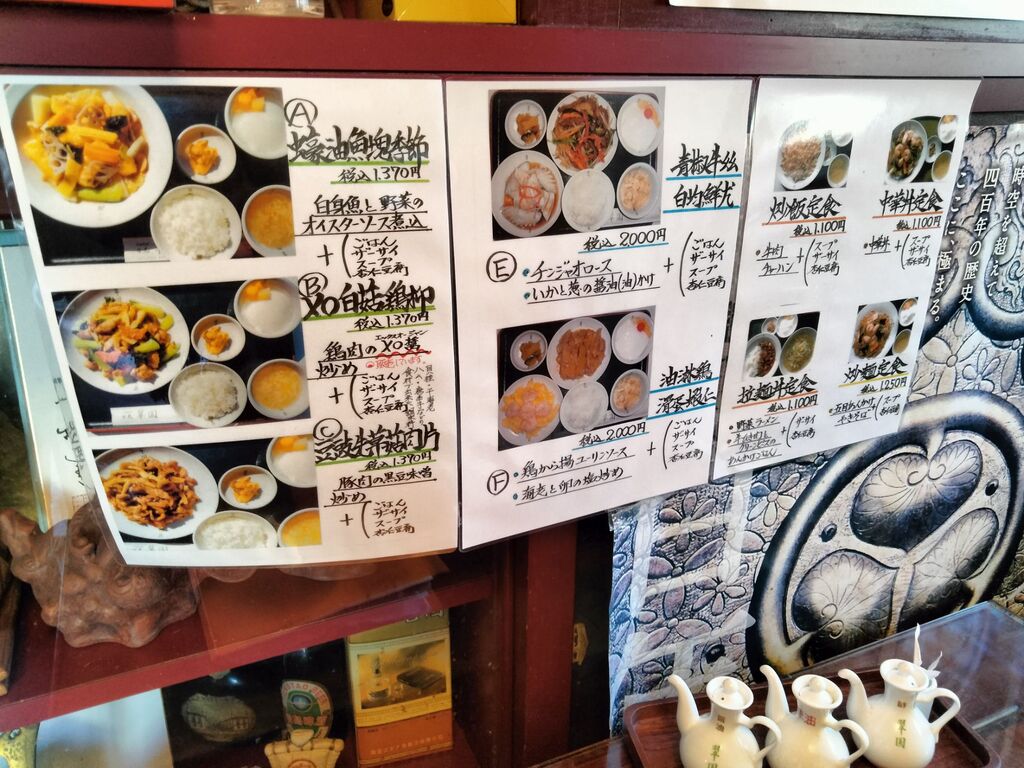 A
蠔油魚塊季節
税込 1.370円
白身魚と野菜の
オイスターソース煮込
+ ごはん
ザーサイ
スープ
杏仁豆腐
B
XO白菇鶏柳
税込 1.370円
鶏肉のXO醤
炒め
+ ごはん
ザーサイ
スープ
杏仁豆腐
C
税込 1.370円
豚肉の黒豆味噌
炒め
+ ごはん
ザーサイ
スープ
杏仁豆腐
青椒牛絲
税込 2000円
E
・チンジャオロース
・いかと葱の醤油(油)かけ
+ ごはん
ザーサイ
スープ
杏仁豆腐
油淋鶏
滑蛋蝦仁
税込 2.000円
F
・鶏から揚ユーリンソース
・海老と卵の塩炒め
+ ごはん
ザーサイ
スープ
杏仁豆腐
炒飯定食
税込 1.100円
・牛肉
チャーハン
+ スープ
ザーサイ
杏仁豆腐
中華丼定食
税込 1.100円
・中華丼
+ スープ
ザーサイ
杏仁豆腐
拉麺丼定食
税込 1.100円
・野菜ラーメン
+ ザーサイ
杏仁豆腐
炒麺定食
税込 1250円
・五目あんかけ
やきそば
+ スープ
ザーサイ
杏仁豆腐
時空を超えて
四百年の歴史
ここに、極まる。
翠園
翠園